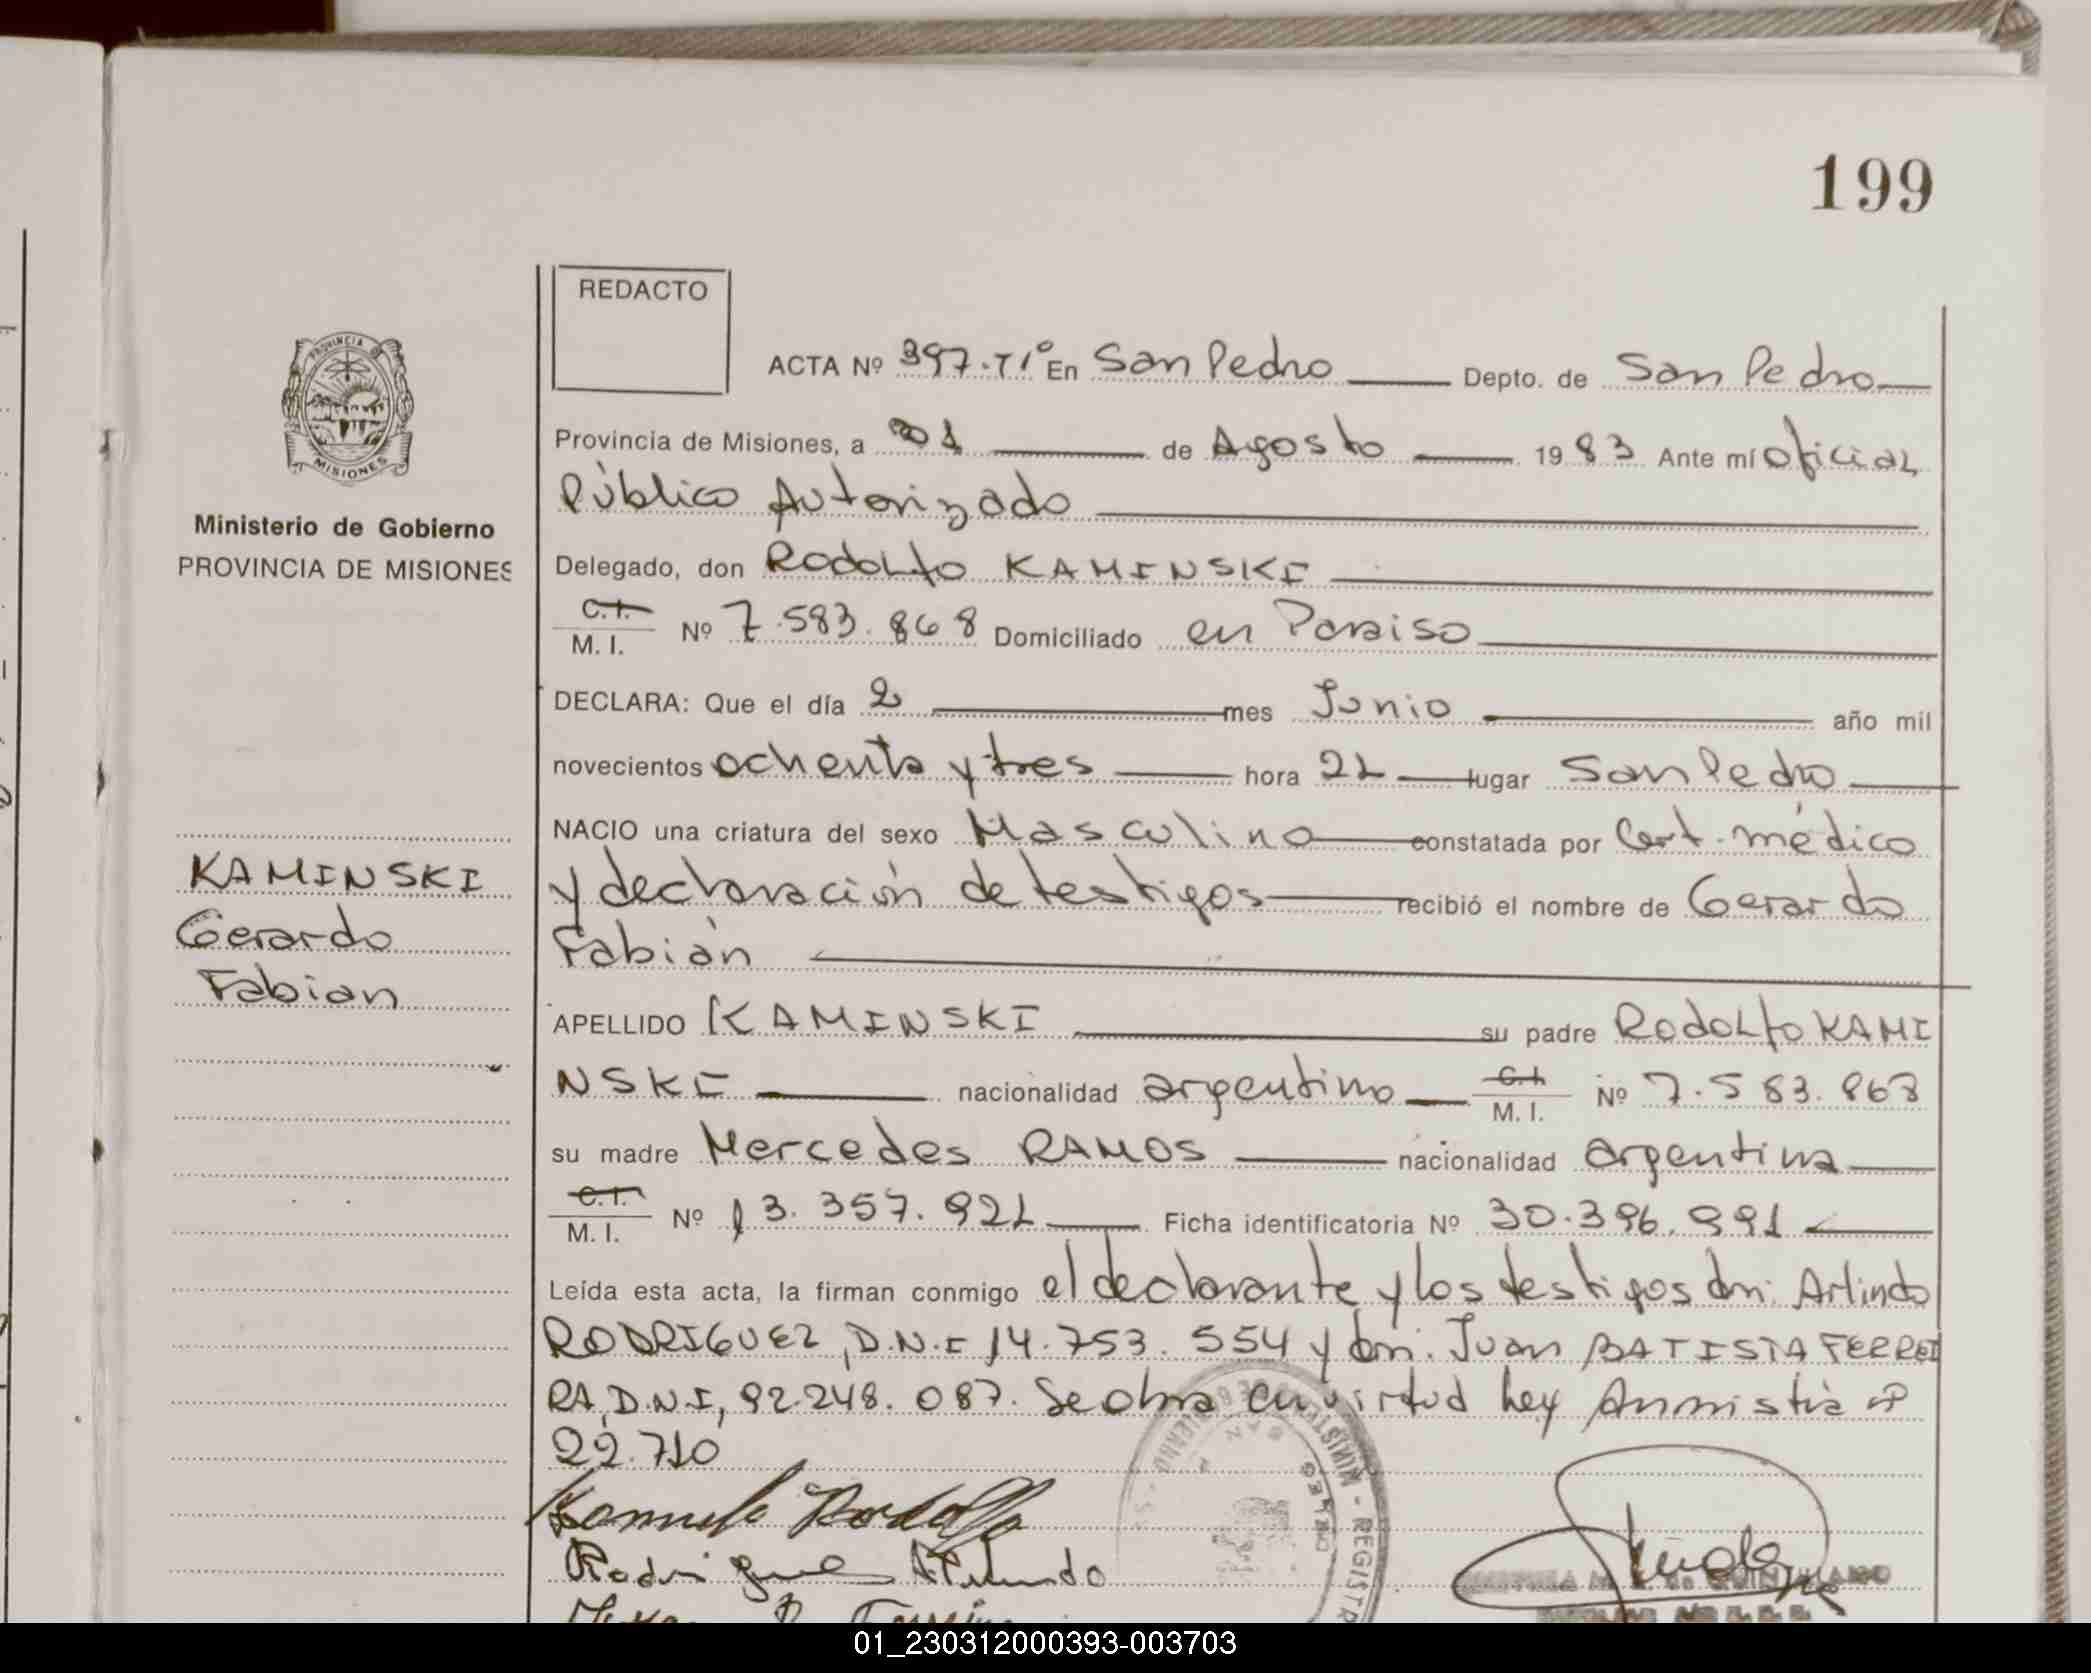 199
REDACTO
ACTA Nº 397.T1º En San Pedro Depto. de San Pedro
Provincia de Misiones, a 01 de Agosto 1983 Ante mí oficial
Público Autorizado
Delegado, don Rodolfo KAMINSKI
C.I. / M. I. Nº 7.583.868 Domiciliado en Paraiso
DECLARA: Que el día 2 mes Junio año mil
novecientos ochenta y tres hora 21 lugar San Pedro
NACIO una criatura del sexo Masculino constatada por Cert. médico
y declaración de testigos recibió el nombre de Gerardo
Fabián
APELLIDO KAMINSKI su padre Rodolfo KAMI
NSKI nacionalidad argentino C.I. / M. I. Nº 7.583.868
su madre Mercedes RAMOS nacionalidad argentina
C.I. / M. I. Nº 13.357.921 Ficha identificatoria Nº 30.396.991
Leída esta acta, la firman conmigo el declarante y los testigos dn. Arlindo
RODRIGUEZ, D.N.I 14.753.554 y dn. Juan BATISTA FERREI
RA, D.N.I, 92.248.087. Se obra en virtud ley Anmistia nº
22.710
Rodolfo
PROVINCIA
MISIONES
Ministerio de Gobierno
PROVINCIA DE MISIONES
KAMINSKI
Gerardo
Fabian
01_230312000393-003703